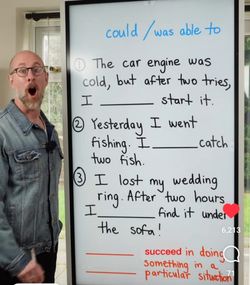 could / was able to
① The car engine was
cold, but after two tries,
I ________ start it.
② Yesterday I went
fishing. I ________ catch
two fish.
③ I lost my wedding
ring. After two hours
I ________ find it under
the sofa!
succeed in doing
something in a
particular situation
6,213
71